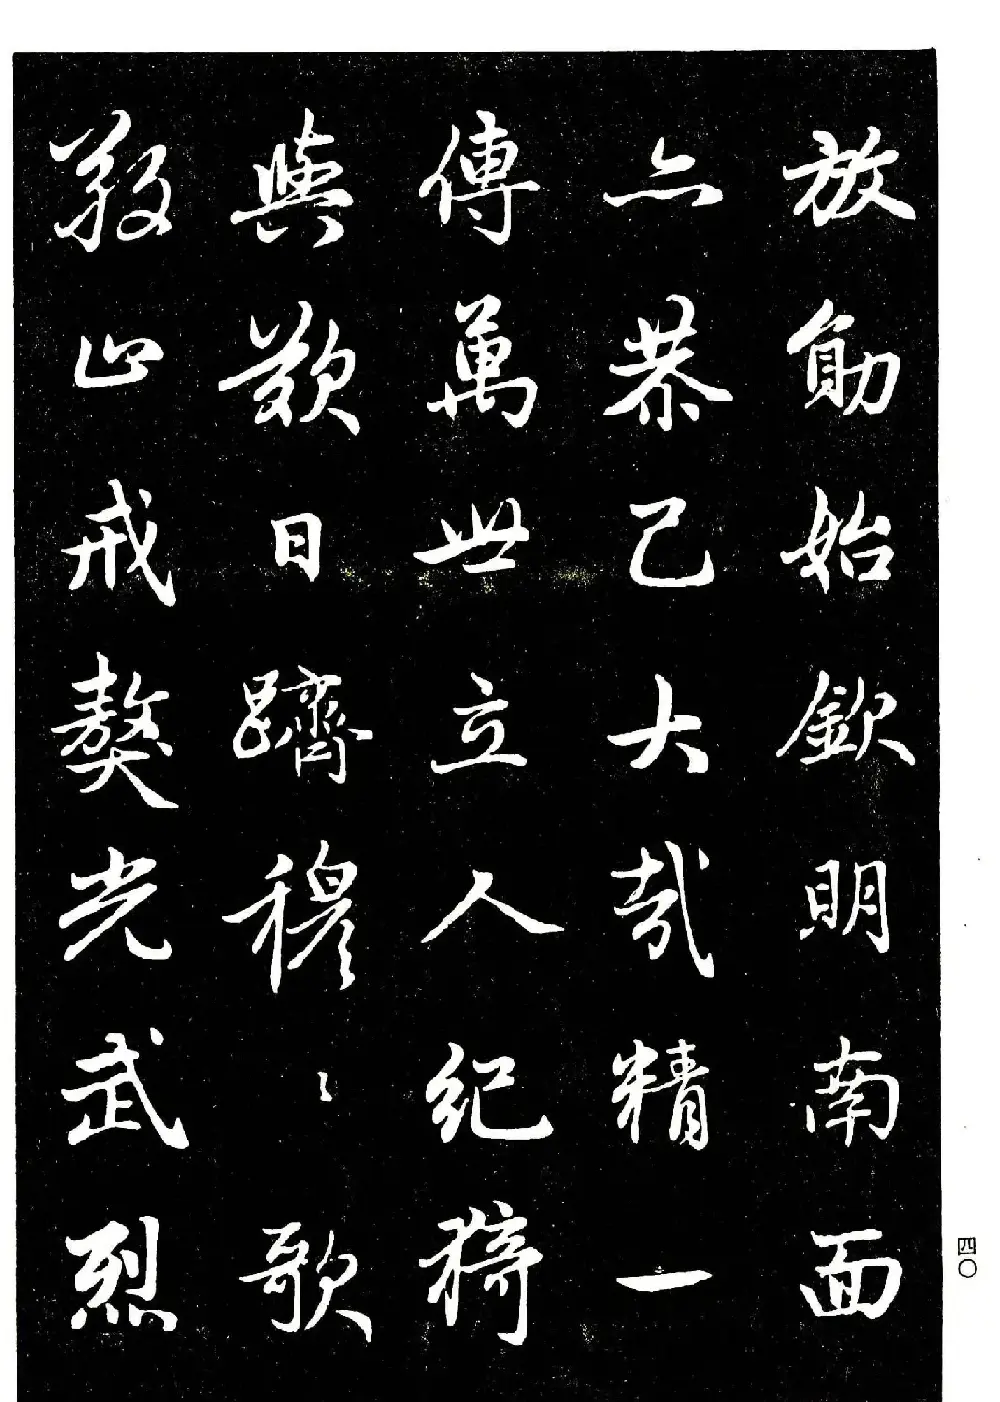 放勛始欽明南面
亦恭己大哉精一
傳萬世立人紀猗
與歎日躋穆〻歌
敬止戒獒光武烈
四〇